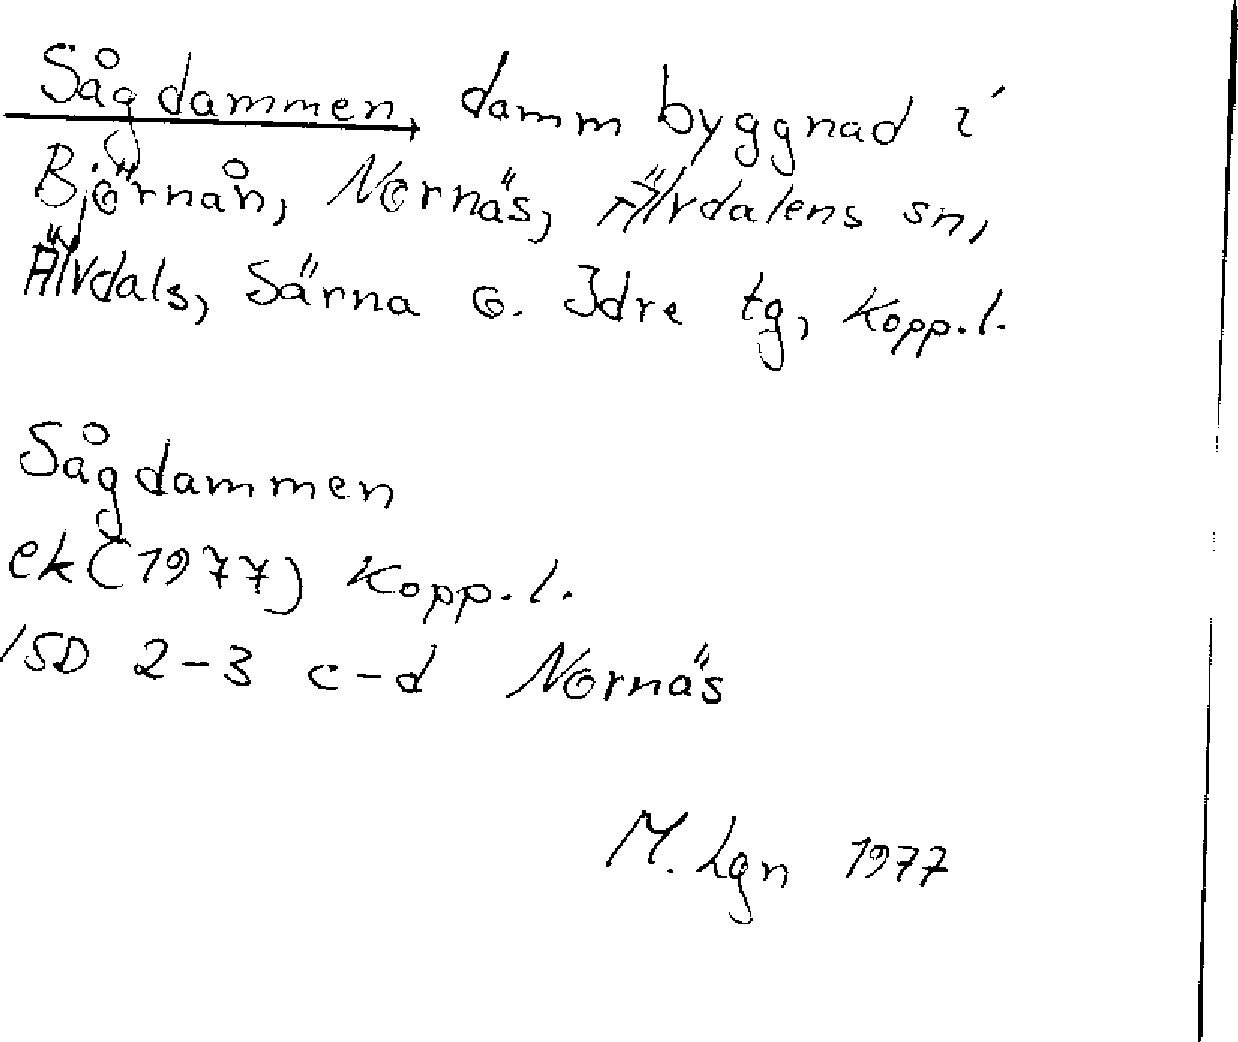 Sågdammen, dammbyggnad i
Björnån, Nornäs, Älvdalens sn,
Älvdals, Särna o. Idre tg, Kopp.l.
Sågdammen
ek (1977) Kopp.l.
15D 2-3 c-d Nornäs
M. Lgn 1977